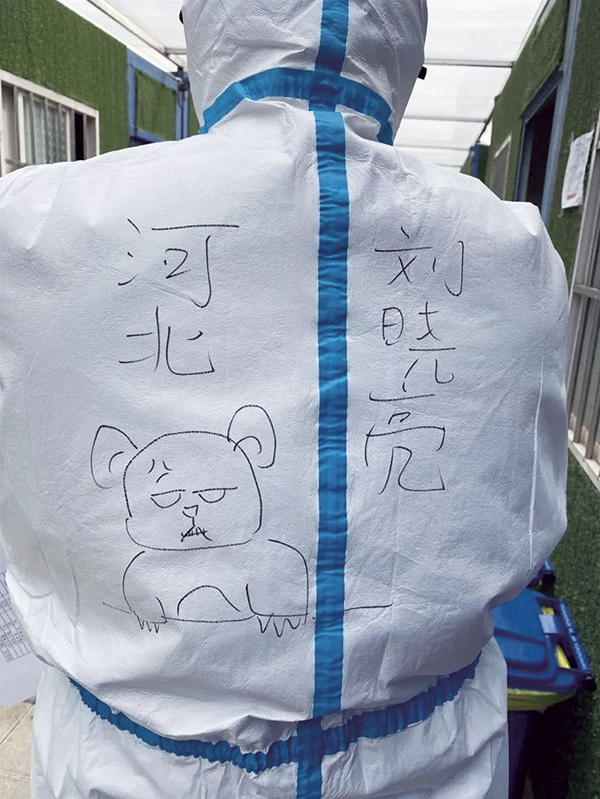 河北
刘晓亮